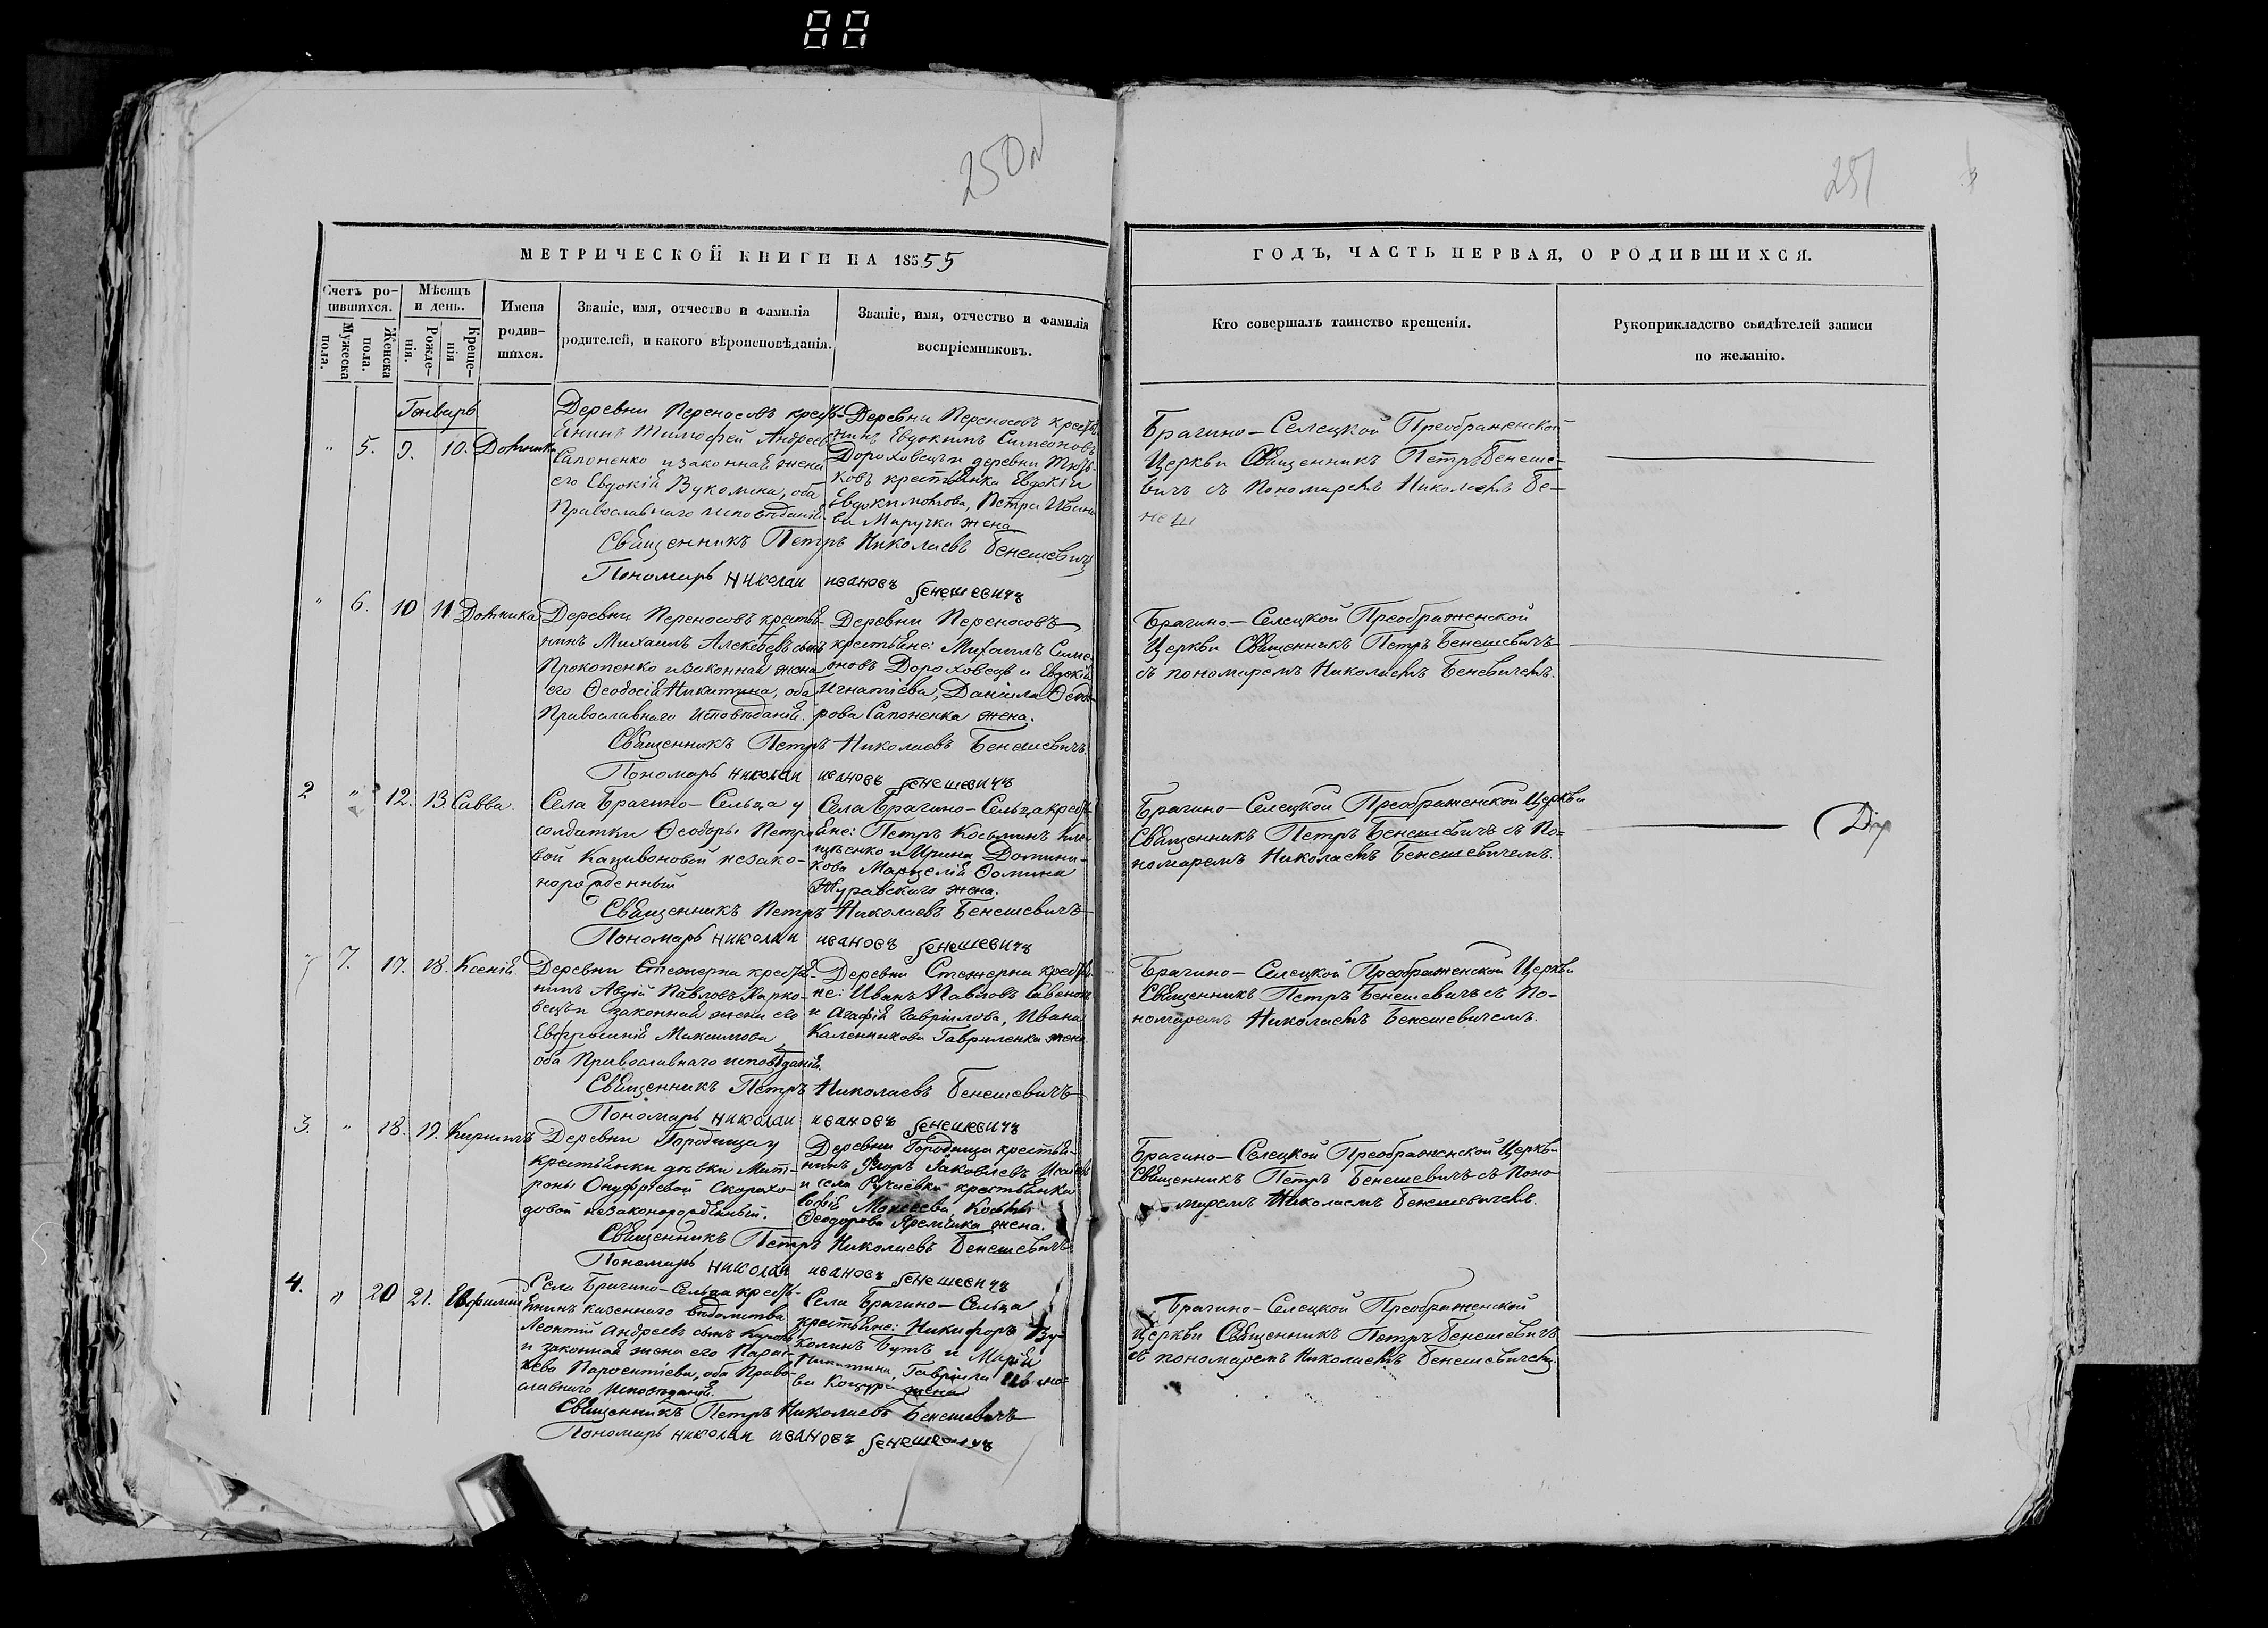 88
250
251
МЕТРИЧЕСКОЙ КНИГИ НА 18555
ГОДЪ, ЧАСТЬ ПЕРВАЯ, О РОДИВШИХСЯ.
Счетъ ро-
дившихся.
Мужеска
пола.
Женска
пола.
Мѣсяцъ
и день.
Рожде-
нія.
Креще-
нія
Имена
родив-
шихся.
Званіе, имя, отчество и фамилія
родителей, и какого вѣроисповѣданія.
Званіе, имя, отчество и фамилія
воспріемниковъ.
Кто совершалъ таинство крещенія.
Рукоприкладство свидѣтелей записи
по желанію.
Генварь
" 5. 9. 10. Домника
Деревни Переносовъ кресть-
янинъ Тимофей Андреевъ
Сапоненко и законная жена
его Евдокія Вукомина, оба
Православнаго исповѣданія.
Деревни Переносовъ крестья-
нинъ Евдокимъ Симеоновъ
Дороховецъ и деревни
ковъ крестьянка Евдокія
Евдокимова, Петра Ивано-
ва Маручка жена
Священникъ Петръ Николаевъ Бенешевичъ
Пономарь николаи ивановъ бенешевичъ
Брагино-Селецкой Преображенской
Церкви Священникъ Петръ Бенеше-
вичъ съ Пономаремъ Николаемъ Бе-
неш
" 6. 10 11 Домника
Деревни Переносовъ крестья-
нинъ Михаилъ Алексѣевъ сынъ
Прокопенко и законная жена
его Ѳеодосія Никитина, оба
Православнаго Исповѣданія.
Деревни Переносовъ
крестьяне: Михаилъ Симе-
оновъ Дороховецъ и Евдокія
Игнатіева, Даніила Ѳеодо-
рова Сапоненка жена.
Священникъ Петръ Николаевъ Бенешевичъ.
Пономарь николаи ивановъ бенешевичъ
Брагино-Селецкой Преображенской
Церкви Священникъ Петръ Бенешевичъ
съ пономаремъ Николаемъ Беневичемъ.
2 " 12. 13. Савва.
Села Брагино-Сельца у
солдатки Ѳеодоры Петро-
вой Кацивоновой незако-
норожденный
Села Брагино-Сельца кресть-
яне: Петръ Косьминъ
и Ирина Домини-
кова Марцелія Ѳомина
Журавскаго жена.
Священникъ Петръ Николаевъ Бенешевичъ
Пономарь николаи ивановъ бенешевичъ
Брагино-Селецкой Преображенской Церкви
Священникъ Петръ Бенешевичъ съ По-
номаремъ Николаемъ Бенешевичемъ.
" 7. 17. 18. Ксенія.
Деревни Стежерна крестья-
нинъ Авдій Павловъ Жарко-
вецъ и законная жена его
Евфросинія Максимова
оба Православнаго исповѣданія.
Деревни Стежерна крестья-
не: Иванъ Павловъ
и Агафія Гавріилова, Ивана
Каленникова Гавриленка жена
Священникъ Петръ Николаевъ Бенешевичъ
Пономарь николаи ивановъ бенешевичъ
Брагино-Селецкой Преображенской Церкви
Священникъ Петръ Бенешевичъ съ По-
номаремъ Николаемъ Бенешевичемъ.
3. " 18. 19. Кириллъ
Деревни Городища у
крестьянки дѣвки Мат-
роны Онуфріевой Скорохо-
довой незаконорожденный.
Деревни Городища крестья-
нинъ Яковлевъ
и села Ручаевки крестьянка
Софія Моисеева, Косьмы
Ѳеодорова Яремчика жена.
Священникъ Петръ Николаевъ Бенешевичъ
Пономарь николаи ивановъ бенешевичъ
Брагино-Селецкой Преображенской Церкви
Священникъ Петръ Бенешевичъ съ Поно-
маремъ Николаемъ Бенешевичемъ.
4. " 20 21. Евфимій
Села Брагино-Сельца кресть-
янинъ казеннаго вѣдомства
Леонтій Андреевъ сынъ
и законная жена его Парас-
кева Пароентіева, оба Право-
славнаго Исповѣданія.
Села Брагино-Сельца
крестьяне: Никифоръ Ву-
коминъ Бутъ и Марія
Никитина, Гавріила Ивано-
ва Коцура жена
Священникъ Петръ Николаевъ Бенешевичъ
Пономарь николаи ивановъ бенешевичъ
Брагино-Селецкой Преображенской
Церкви Священникъ Петръ Бенешевичъ
съ пономаремъ Николаемъ Бенешевичемъ.